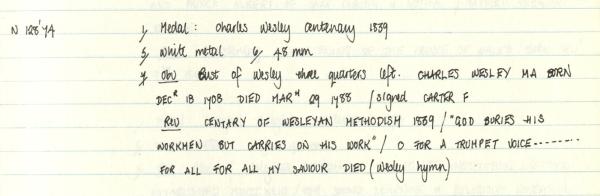 N 128'74 1, Medal: Charles Wesley Centenary 1839
5, White metal 6, 48 mm
7, Obv Bust of Wesley three quarters left. CHARLES WESLEY MA BORN
DECR 18 1708 DIED MARH 29 1788 / signed CARTER F
Rev CENTARY OF WESLEYAN METHODISM 1839 / "GOD BURIES HIS
WORKMEN BUT CARRIES ON HIS WORK" / O FOR A TRUMPET VOICE--------
FOR ALL FOR ALL MY SAVIOUR DIED (Wesley hymn)